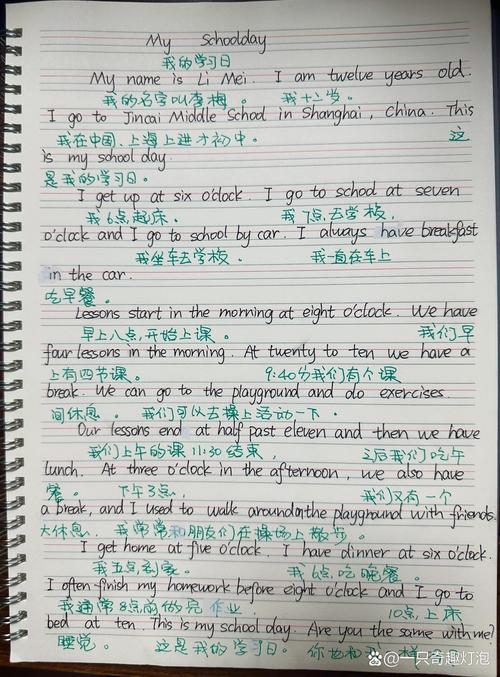 My Schoolday
我的学习日
My name is Li Mei. I am twelve years old.
我的名字叫李梅。 我十二岁。
I go to Jincai Middle School in Shanghai, China. This
我在中国、上海上进才初中。 这
is my school day.
是我的学习日。
I get up at six o'clock. I go to school at seven
我6点起床。 我7点去学校,
o'clock and I go to school by car. I always have breakfast
我坐车去学校。 我一直在车上
in the car.
吃早餐。
Lessons start in the morning at eight o'clock. We have
早上八点,开始上课。 我们早
four lessons in the morning. At twenty to ten we have a
上有四节课。 9:40分我们有个课
break. We can go to the playground and do exercises.
间休息。 我们可以去操上活动一下.
Our lessons end at half past eleven and then we have
我们上午的课11:30结束, 之后我们吃午
lunch. At three o'clock in the afternoon, we also have
餐。 下午3点, 我们又有一个
a break, and I used to walk around on the playground with friends.
大休息. 我常常和朋友们在操场上散步。
I get home at five o'clock. I have dinner at six o'clock.
我五点到家。 我6点吃晚餐。
I often finish my homework before eight o'clock and I go to
我通常8点前做完作业, 10点上床
bed at ten. This is my school day. Are you the same with me?
睡觉。 这是我的学习日。 你也和我一样
一只奇趣灯泡